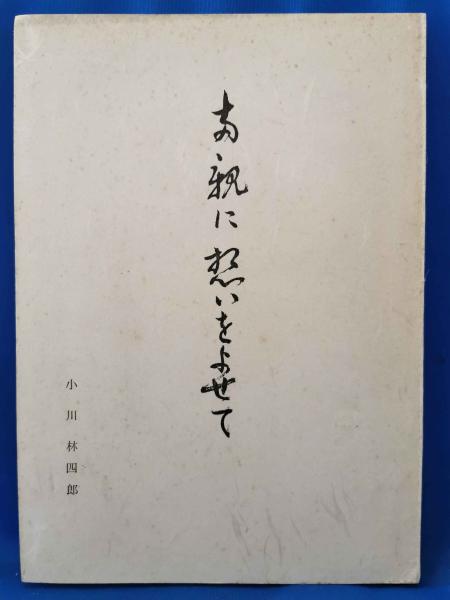 両親に想いをよせて
小川林四郎